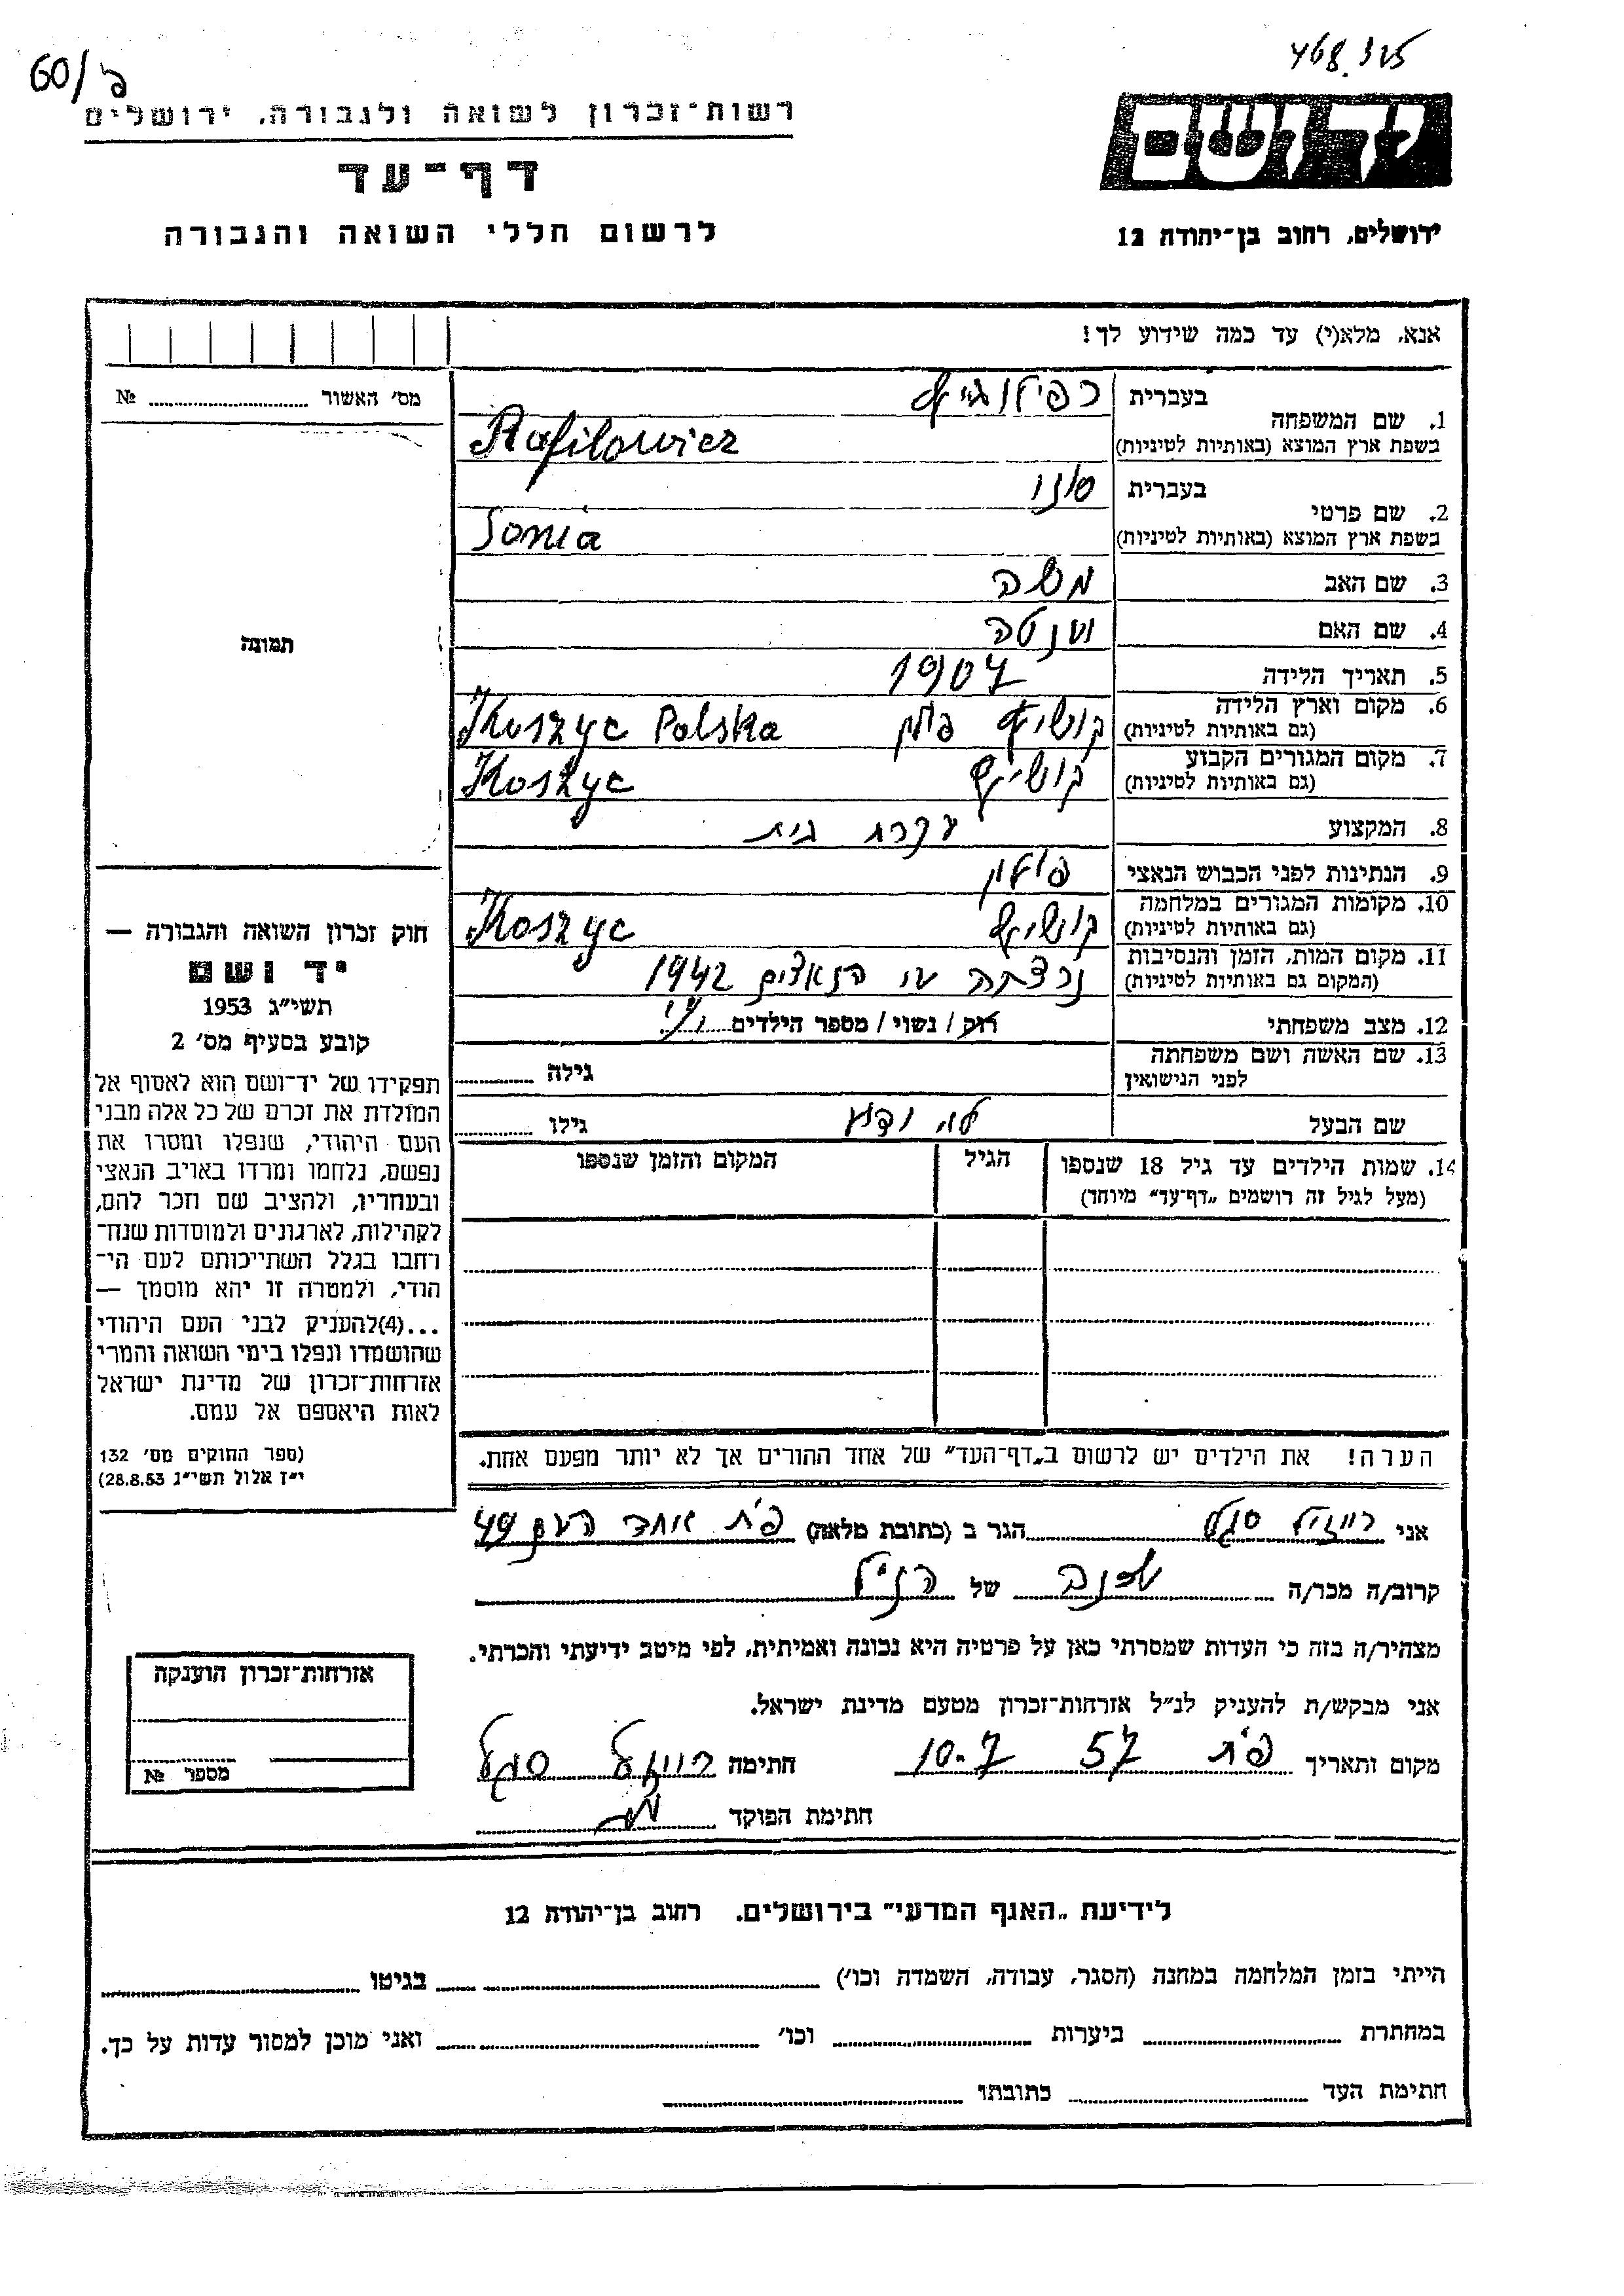 60/פ
468.325
רשות-זכרון לשואה ולגבורה, ירושלים
דף-עד
לרשום חללי השואה והגבורה
יד ושם
ירושלים, רחוב בן-יהודה 12
אנא, מלא(י) עד כמה שידוע לך!
מס' האשור № 
תמונה
חוק זכרון השואה והגבורה —
יד ושם
תשי"ג 1953
קובע בסעיף מס' 2
תפקידו של יד-ושם הוא לאסוף אל
המולדת את זכרם של כל אלה מבני
העם היהודי, שנפלו ומסרו את
נפשם, נלחמו ומרדו באויב הנאצי
ובעוזריו, ולהציב שם וזכר להם,
לקהילות, לארגונים ולמוסדות שנח־
רבו בגלל השתייכותם לעם הי־
הודי, ולמטרה זו יהא מוסמך —
...(4)להעניק לבני העם היהודי
שהושמדו ונפלו בימי השואה והמרי
אזרחות-זכרון של מדינת ישראל
לאות היאספם אל עמם.
(ספר החוקים מס' 132
י"ז אלול תשי"ג 28.8.53)
בעברית רפילוביץ
1. שם המשפחה
בשפת ארץ המוצא (באותיות לטיניות) Rafilowicz
בעברית סוניו
2. שם פרטי
בשפת ארץ המוצא (באותיות לטיניות) Sonia
3. שם האב משה
4. שם האם
5. תאריך הלידה 1907
6. מקום וארץ הלידה
(גם באותיות לטיניות) קושיץ פולין Koszyc Polska
7. מקום המגורים הקבוע
(גם באותיות לטיניות) קושיץ Koszyc
8. המקצוע עקרת בית
9. הנתינות לפני הכבוש הנאצי פולין
10. מקומות המגורים במלחמה
(גם באותיות לטיניות) קושיץ Koszyc
11. מקום המות, הזמן והנסיבות
(המקום גם באותיות לטיניות) נרצחה ע"י הנאצים 1942
12. מצב משפחתי רוק / נשוי / מספר הילדים
13. שם האשה ושם משפחתה
לפני הנישואין גילה
שם הבעל לא ידוע גילו
14. שמות הילדים עד גיל 18 שנספו הגיל המקום והזמן שנספו
(מעל לגיל זה רושמים „דף-עד" מיוחד)
הערה! את הילדים יש לרשום ב„דף-העד" של אחד ההורים אך לא יותר מפעם אחת.
אני רייזל סגל הגר ב (כתובת מלאה) פ"ת אחד העם 49
קרוב/ה מכר/ה שכנה של הנ"ל
מצהיר/ה בזה כי העדות שמסרתי כאן על פרטיה היא נכונה ואמיתית, לפי מיטב ידיעתי והכרתי.
אני מבקש/ת להעניק לנ"ל אזרחות-זכרון מטעם מדינת ישראל.
מקום ותאריך פ"ת 57 10.7 חתימה רייזל סגל
חתימת הפוקד
אזרחות-זכרון הוענקה
מספר №
לידיעת „האגף המדעי" בירושלים, רחוב בן-יהודה 12
הייתי בזמן המלחמה במחנה (הסגר, עבודה, השמדה וכו') בגיטו
במחתרת ביערות וכו' ואני מוכן למסור עדות על כך.
חתימת העד כתובתו